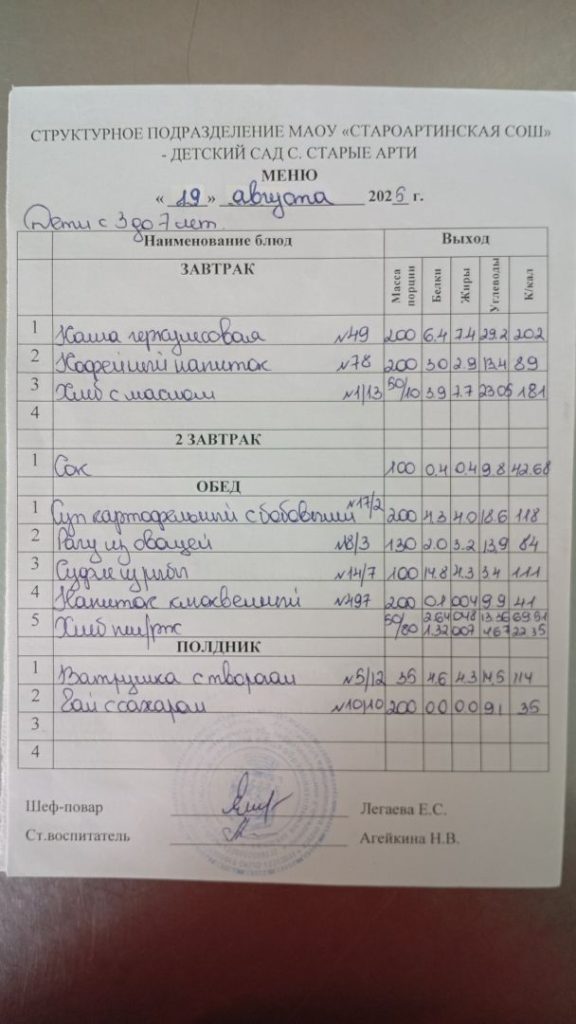 СТРУКТУРНОЕ ПОДРАЗДЕЛЕНИЕ МАОУ «СТАРОАРТИНСКАЯ СОШ»
- ДЕТСКИЙ САД С. СТАРЫЕ АРТИ
МЕНЮ
« 19 » августа 2025 г.
Дети с 3 до 7 лет.
Наименование блюд Выход
ЗАВТРАК Масса порции Белки Жиры Углеводы К/кал
1 Каша геркулесовая №49 200 6.4 7.4 29.2 202
2 Кофейный напиток №78 200 3.0 2.9 13.4 89
3 Хлеб с маслом №1/13 50/10 3.9 7.7 23.05 181
4
2 ЗАВТРАК
1 Сок 100 0.4 0.4 9.8 42.68
ОБЕД
1 Суп картофельный с бобовыми №17/2 200 4.3 4.0 18.6 118
2 Рагу из овощей №8/3 130 2.0 3.2 13.9 84
3 Суфле из рыбы №14/7 100 14.8 4.3 3.4 111
4 Напиток клюквенный №497 200 0.1 0.04 9.9 41
5 Хлеб пш/рж 50/80 2.64 0.48 13.36 69.91
1.32 0.07 4.67 22.35
ПОЛДНИК
1 Ватрушка с творогом №5/12 35 4.6 4.3 14.5 114
2 Чай с сахаром №10/10 200 0.0 0.0 9.1 35
3
4
Шеф-повар Легаева Е.С.
Ст.воспитатель Агейкина Н.В.